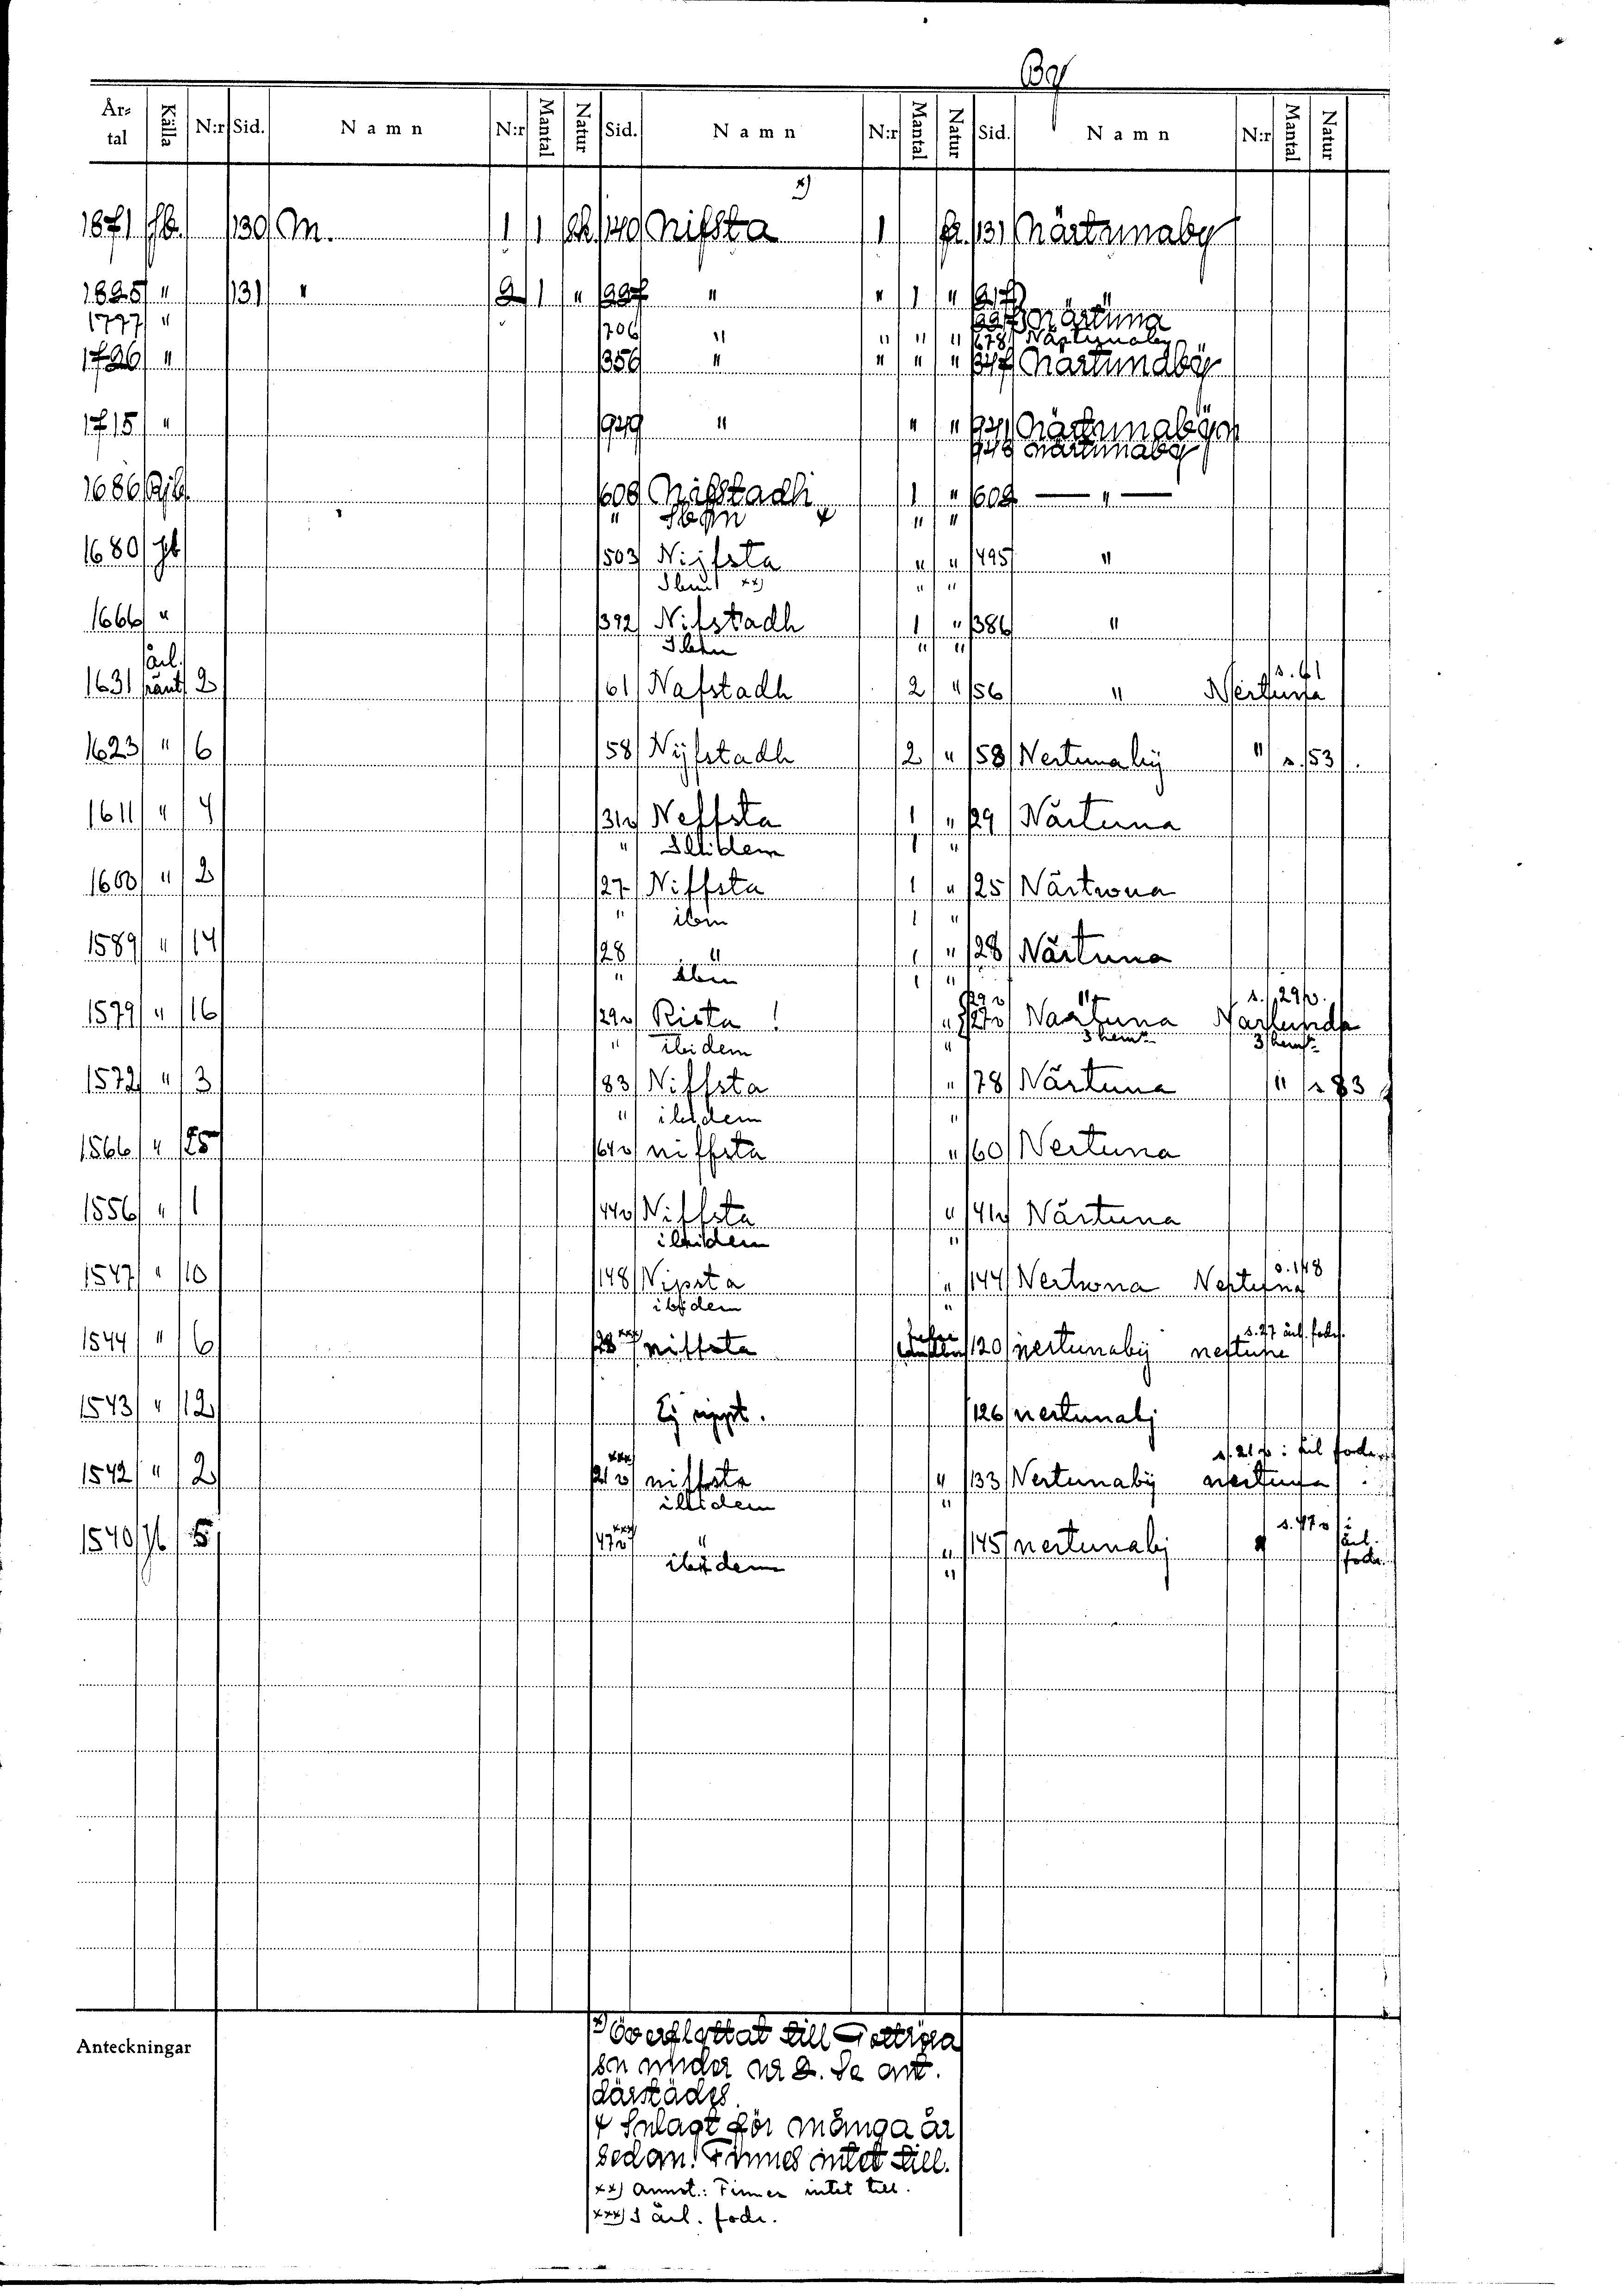 By
År-tal Källa N:r Sid. Namn N:r Mantal Natur Sid. Namn N:r Mantal Natur Sid. Namn N:r Mantal Natur
x)
1871 Jb. 130 M. 1 1 Sk. 140 Nifsta 1 fr. 131 Närtunaby
1825 " 131 " 2 1 " 227 " " 1 " 217 "
227 Närtuna
1777 " 706 " " " " 678 Närtunaby
1726 " 356 " " " " 347 Närtunäby
1715 " 949 " " " 941 Närtunabÿn
948 Närtunaby
1686 Rjb. 608 Nifstadh 1 " 602 — " —
" Ibm + " "
1680 Jb 503 Nijfsta " " 495 "
Ibm xx) " "
1666 " 392 Nifstadh 1 " 386 "
Ibm " "
1631 årl. ränt 2 61 Nafstadh 2 " 56 " Nertuna s. 61
1623 " 6 58 Nijfstadh 2 " 58 Nertunabij " s. 53
1611 " 4 31v Neffsta 1 " 29 Närtuna
" Ibidem 1 "
1600 " 2 27 Niffsta 1 " 25 Närtwna
" ibm 1 "
1589 " 14 28 " 1 " 28 Närtuna
" ibm 1 "
29v " s. 29v.
1579 " 16 29v Rista ! " 27v Nartuna Nartunda
" ibidem " 3 hem 3 hem
1572 " 3 83 Niffsta " 78 Närtuna " s 83
" ibidem "
1566 " 25 64v niffsta " 60 Nertuna
1556 " 1 44v Niffsta " 41v Närtuna
ibidem "
1547 " 10 148 Nipsta " 144 Nertwna Nertuna s. 148
ibidem "
1544 " 6 28 xxx) niffsta 120 nertunabij nertune s. 27 årl. fodr.
1543 " 12 Ej uppt. 126 nertunabj
1542 " 2 21v xxx) niffsta " 133 Nertunabij nertuna s. 21v i årl fodr.
ibidem "
1540 Jb 5 47v xxx) " " 145 nertunabj " s. 47v i årl. fodr.
ibidem "
Anteckningar
x) Överflyttat till Gottröra
sn under nr 2. Se ant.
därstädes.
+ Inlagt för många år
sedan. Finnes intet till.
xx) Annot.: Finnes intet till.
xxx) I årl. fodr.